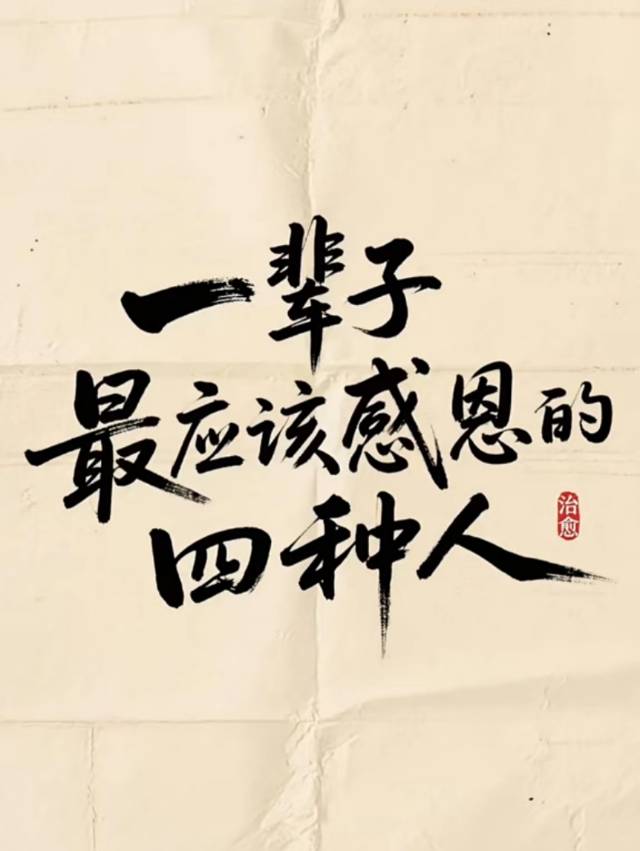 一辈子
最应该感恩的
四种人
治愈